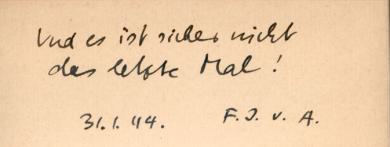 Und es ist sicher nicht
das letzte Mal!
31.1.44. F. J. v. A.